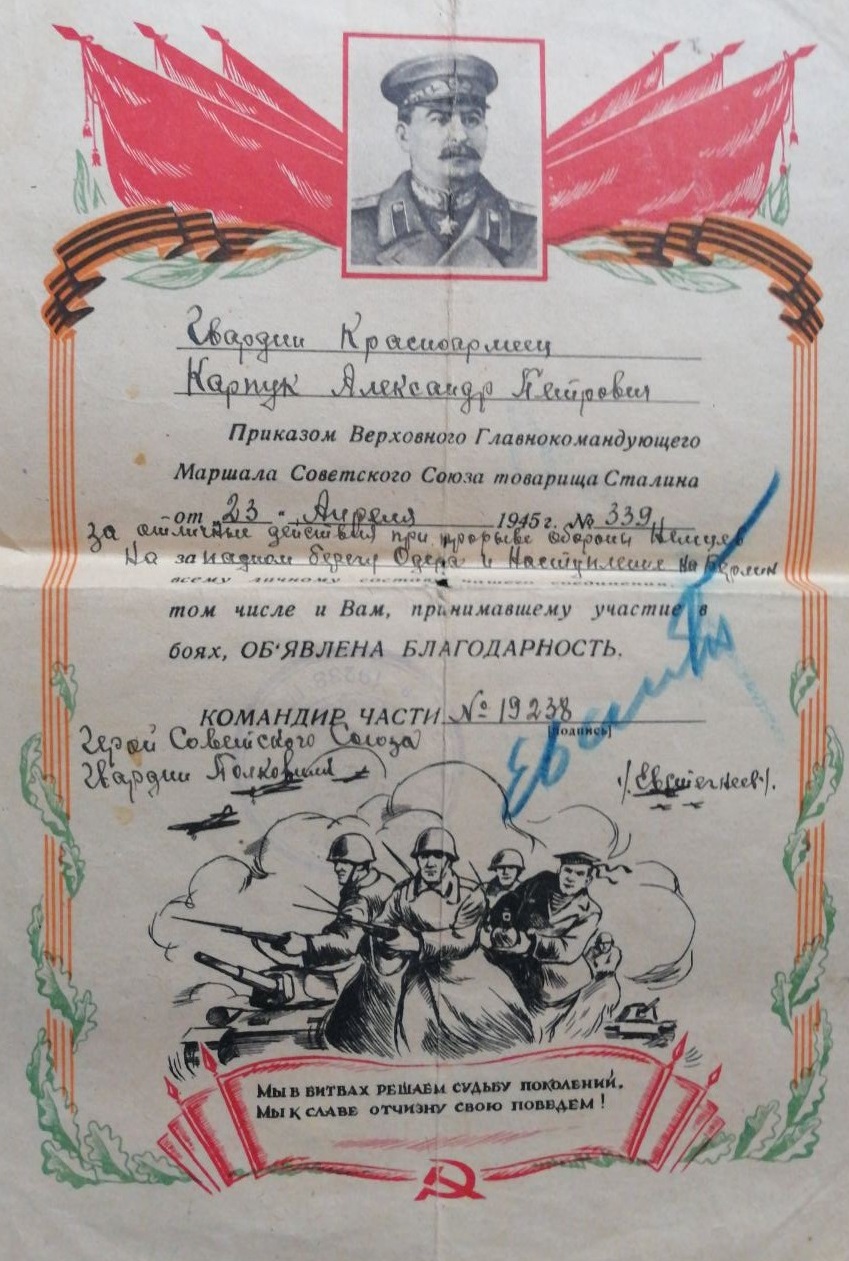 Гвардии Красноармеец
Карпук Александр Петрович
Приказом Верховного Главнокомандующего
Маршала Советского Союза товарища Сталина
от „23" Апреля 1945 г. № 339
за отличные действия при прорыве обороны Немцев
На западном берегу Одера и Наступление на Берлин
всему личному составу нашего соединения, в
том числе и Вам, принимавшему участие в
боях, ОБ'ЯВЛЕНА БЛАГОДАРНОСТЬ.
КОМАНДИР ЧАСТИ № 19238
[подпись]
Герой Советского Союза
Гвардии Полковник /Евстегнеев/.
МЫ В БИТВАХ РЕШАЕМ СУДЬБУ ПОКОЛЕНИЙ,
МЫ К СЛАВЕ ОТЧИЗНУ СВОЮ ПОВЕДЕМ!